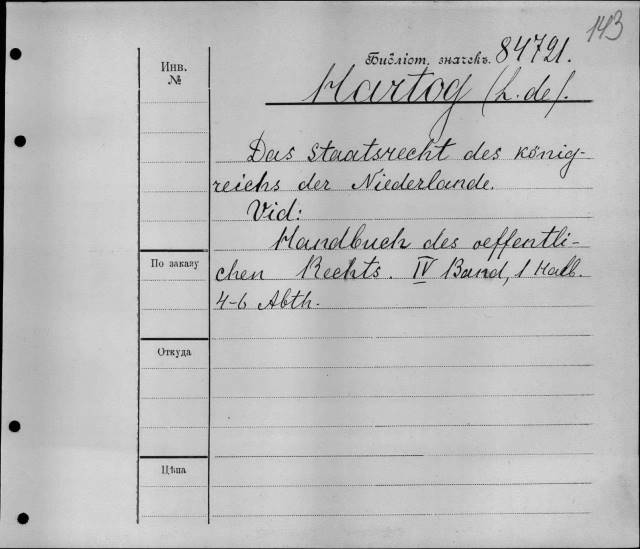 143
Инв.
№
Библіот. значекъ. 84721.
Hartog (L. de).
Das Staatsrecht des König-
reichs der Niederlande.
Vid:
Handbuch des oeffentli-
По заказу
chen Rechts. IV Band, 1 Halb.
4-6 Abth.
Откуда
Цѣна